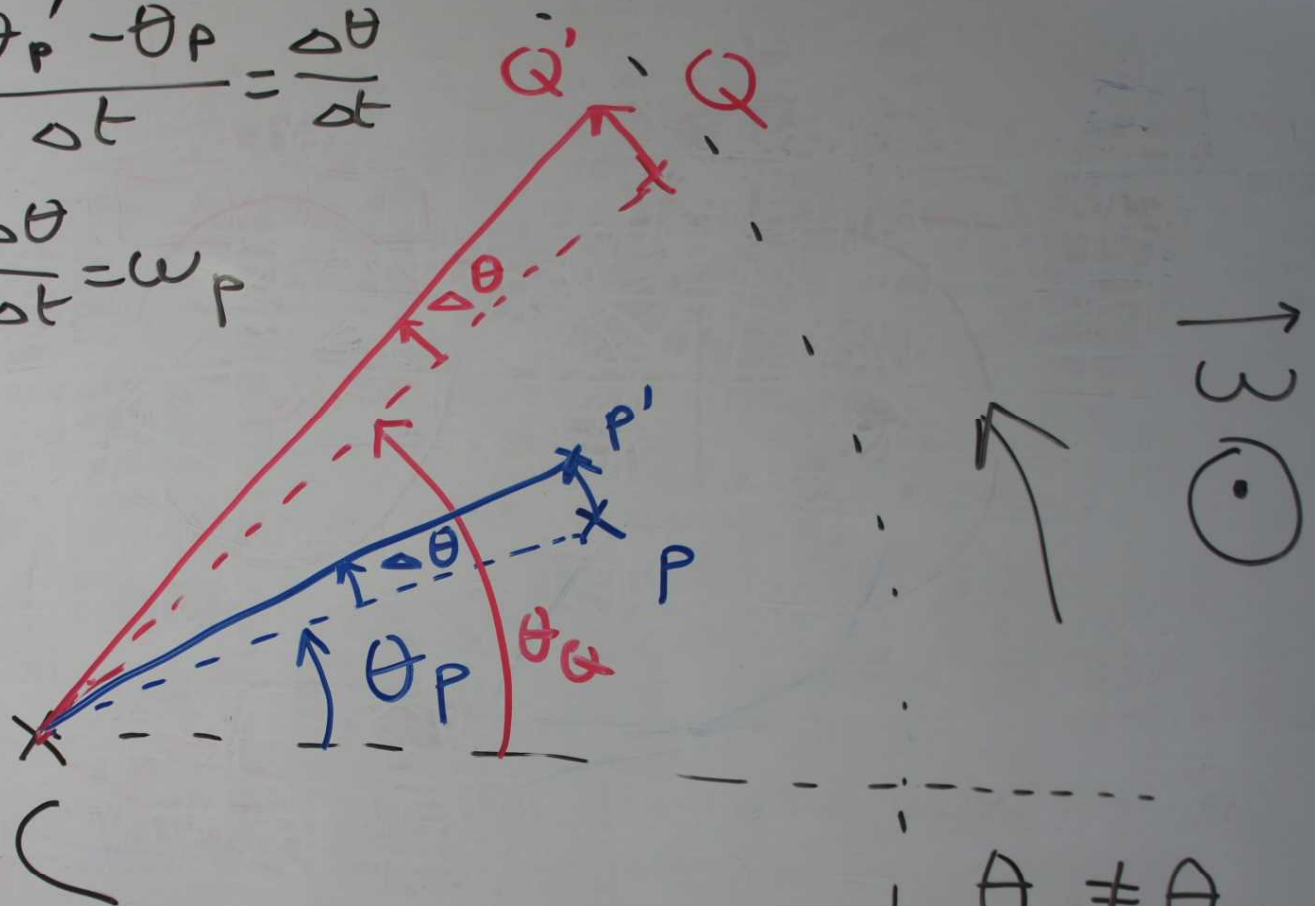 θp' - θp / Δt = Δθ / Δt
Δθ / Δt = ωp
Q' Q
Δθ
ω
P'
Δθ
P
θp
θQ
C
θ ≠ θ